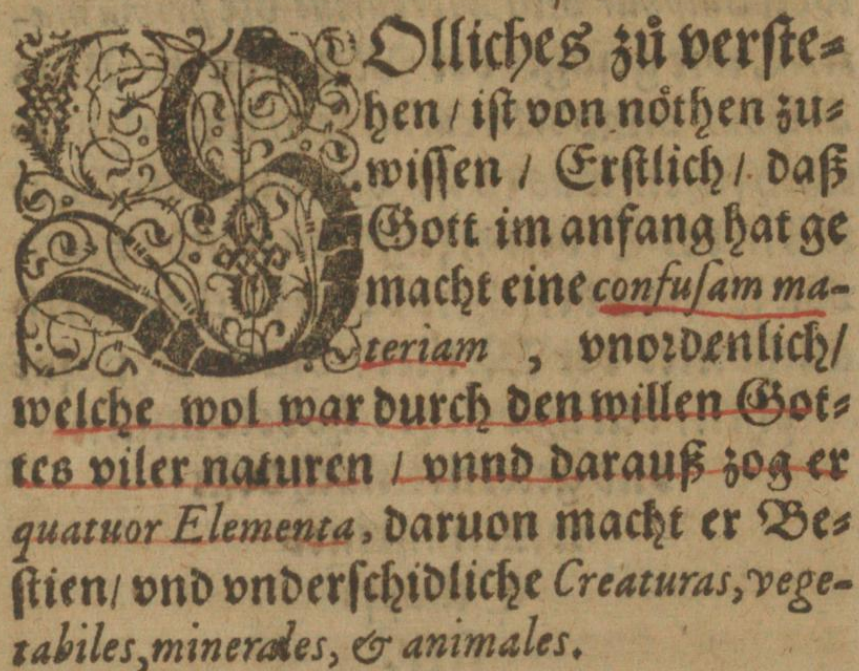 SOlliches zů verſte⸗
hen / iſt von nöthen zu⸗
wiſſen / Erſtlich / daß
Gott im anfang hat ge
macht eine confuſam ma-
teriam , vnordenlich/
welche wol war durch den willen Got⸗
tes viler naturen / vnnd darauß zog er
quatuor Elementa, daruon macht er Be⸗
ſtien/ vnd vnderſchidliche Creaturas, vege-
tabiles, minerales, & animales.